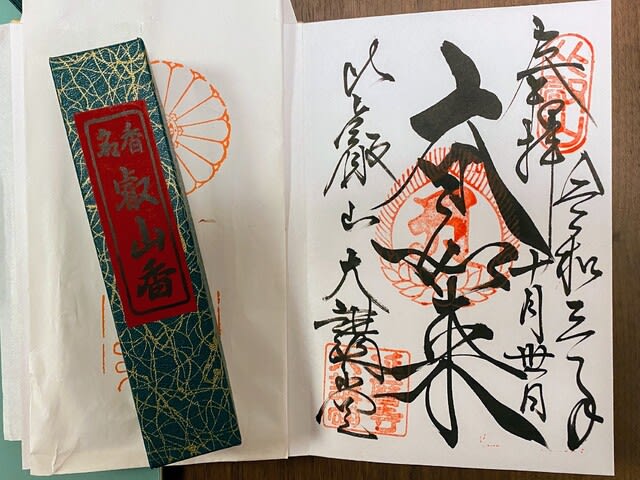 名香
叡山香
奉拝
令和三年
十月卅日
大日如来
比叡山大講堂